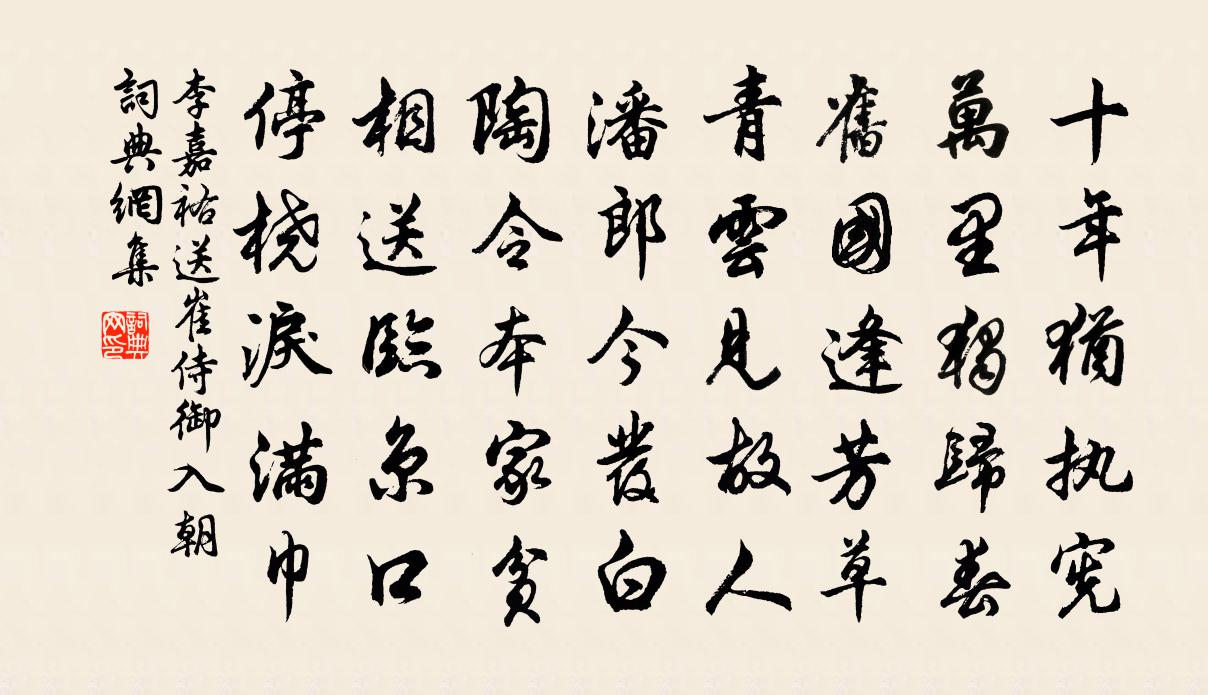 十年猶执宪
萬里獨歸春
舊國逢芳草
青雲見故人
潘郎今發白
陶令本家貧
相送臨京口
停橈淚滿巾
李嘉裕送崔侍御入朝
詞典網集
詞典网印